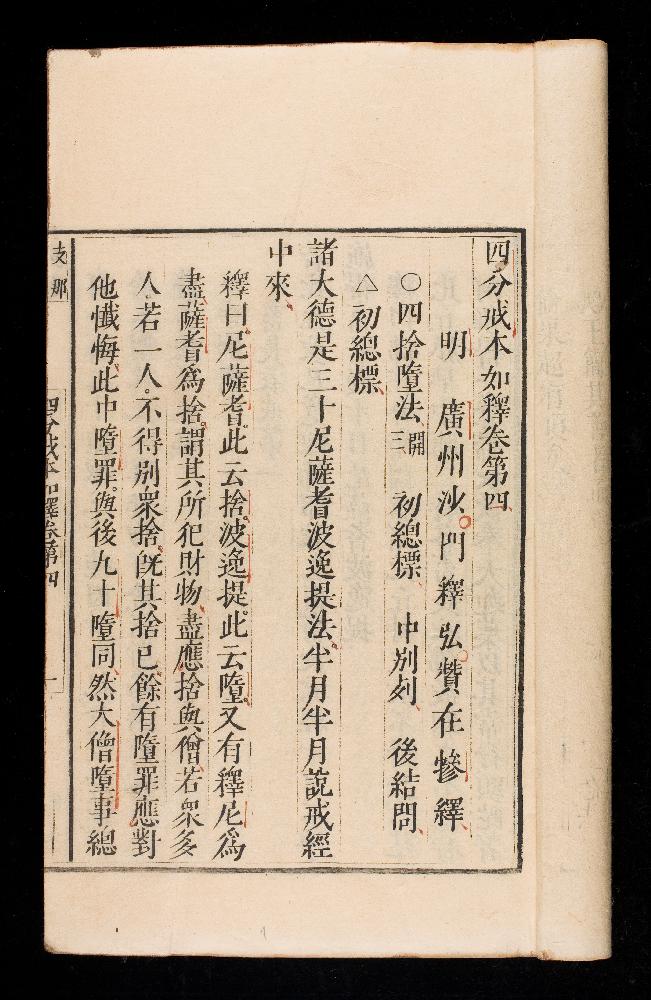 四分戒本如釋卷第四
明 廣州沙門釋弘贊在犙繹
○四捨墮法開三 初總標 中別列 後結問
△初總標
諸大德是三十尼薩耆波逸提法半月半月說戒經
中來
釋曰尼薩耆此云捨波逸提此云墮又有釋尼爲
盡薩耆爲捨謂其所犯財物盡應捨與僧若衆多
人若一人不得別衆捨旣其捨已餘有墮罪應對
他懺悔此中墮罪與後九十墮同然大僧墮事總
支那
四分戒本如釋卷第四
一